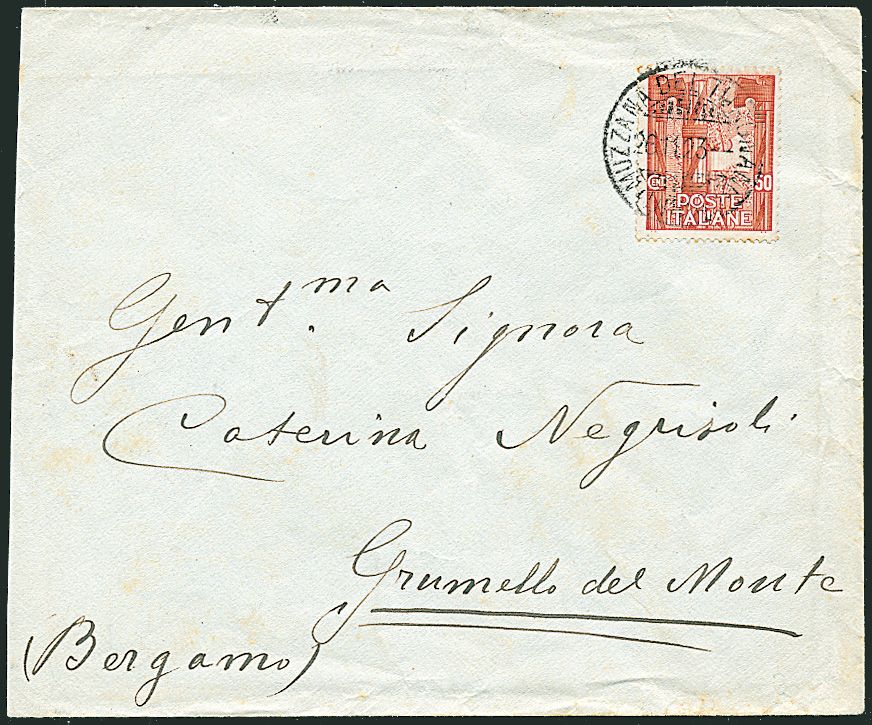 MUZZANA DEL TURGNANO
CENT 50
POSTE
ITALIANE
Gent.ma Signora
Caterina Negrisoli
Grumello del Monte
(Bergamo)